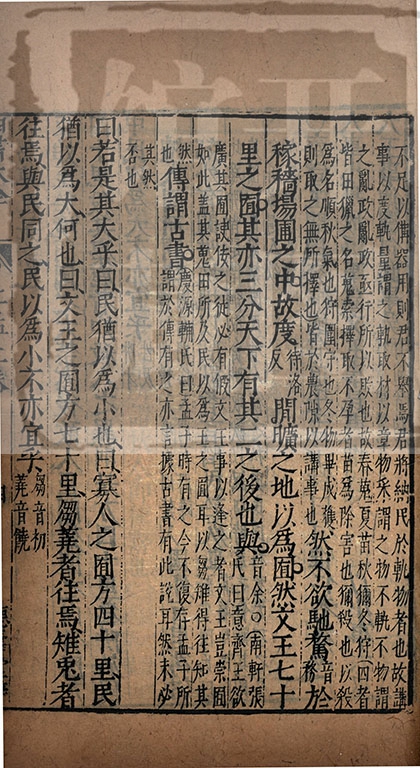 不足以備器用則君不舉焉君將納民於軌物者也故講
事以度軌量謂之軌取材以章物采謂之物不軌不物謂
之亂政亂政亟行所以敗也故春蒐夏苗秋獮冬狩四者
皆田獵之名蒐索擇取不孕者苗爲除害也獮殺也以殺
爲名順秋氣也狩圍守也冬物畢成獲
則取之無所擇也皆於農隙以講事也
然不欲馳騖音務於
稼穡場圃之中故度待洛反閒曠之地以爲囿然文王七十
里之囿其亦三分天下有其二之後也與音余○南軒張
氏曰意齊王欲
廣其囿諛佞之徒必有假文王事以逢之者文王豈崇囿
如此蓋其蒐田所及民以爲王之囿耳以芻雉得往知其
然也
傳謂古書慶源輔氏曰孟子時有之今不復存孟子所
謂於傳有之亦言據古書有此說耳然未必
其然
否也
曰若是其大乎曰民猶以爲小也曰寡人之囿方四十里民
猶以爲大何也曰文王之囿方七十里芻蕘者往焉雉兔者
往焉與民同之民以爲小不亦宜乎芻音初
蕘音饒